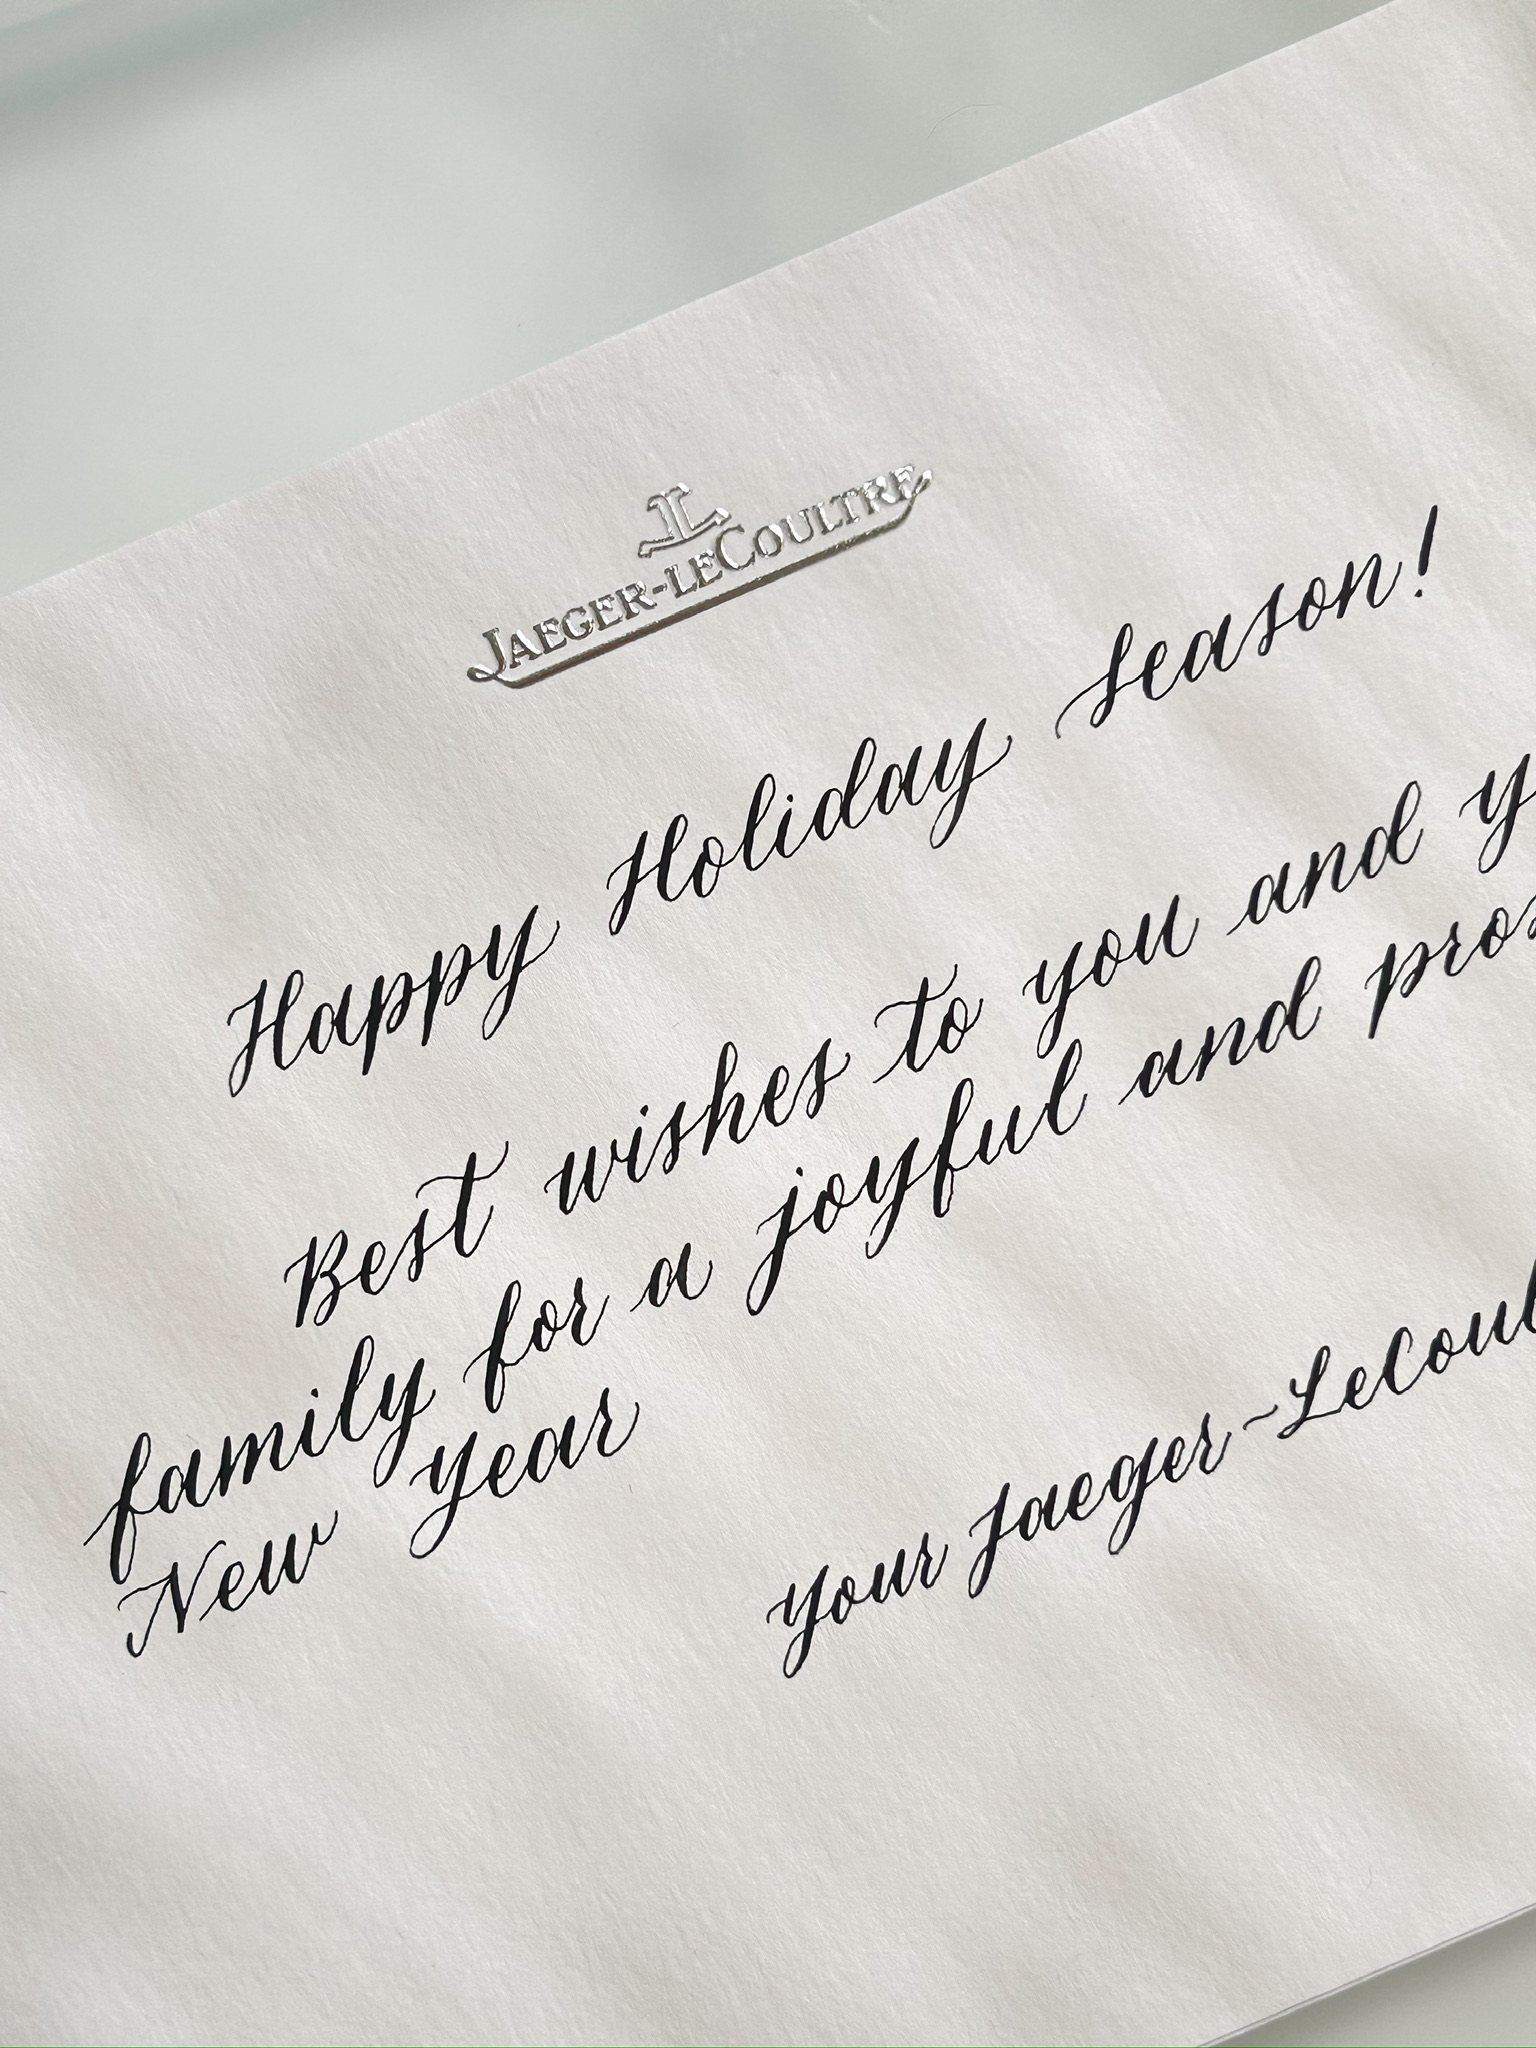 JL
JAEGER-LECOULTRE
Happy Holiday season!
Best wishes to you and
family for a joyful and
New Year
Your Jaeger-LeCoul